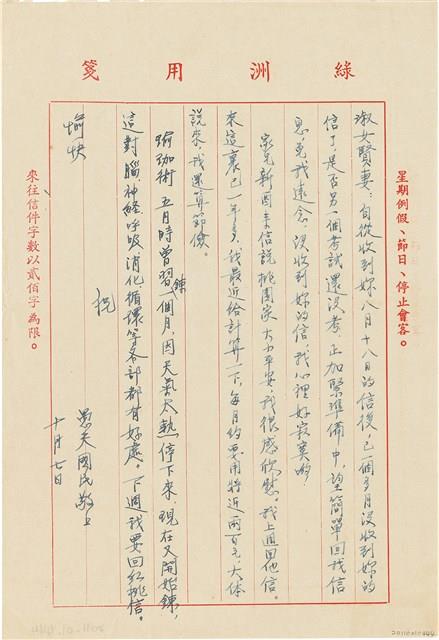 綠洲用箋
星期例假、節日、停止會客。
淑女賢妻：自從收到妳八月十八日的信後，已一個多月沒收到妳的
信了，是否另一個考試還沒考，正加緊準備中，望簡單回我信
息，免我遠念，沒收到妳的信，我心裡好寂寞的，
家兄新國來信說桃園家大小平安，我很感欣慰。我上週回他信。
來這裏已一年多，我最近給計算一下，每月約要用將近兩百元，大体
說來，我還算節儉。
瑜珈術五月時曾習鍊一個月，因天氣太熱停下來，現在又開始鍊，
這對腦、神經、呼吸、消化、循環等各部都有好處。下週我要回紅桃信。
祝
愉快
愚夫國民敬上
十月七日
來往信件字數以貳佰字為限。